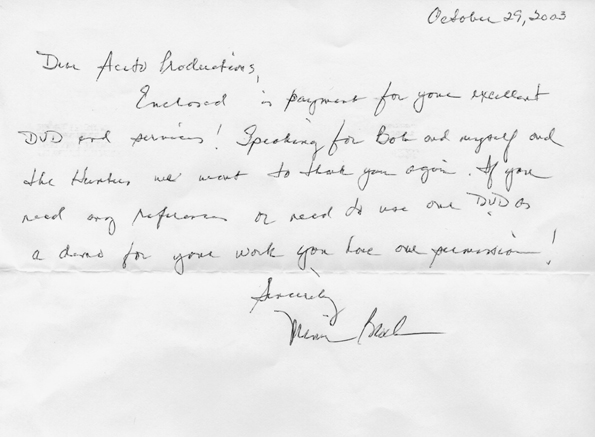 October 29, 2003
Dear Aceto Productions,
Enclosed is payment for your excellent
DVD and services! Speaking for Bob and myself and
the Hunters we want to thank you again. If you
need any references or need to use our DVD as
a demo for your work you have our permission!
Sincerely